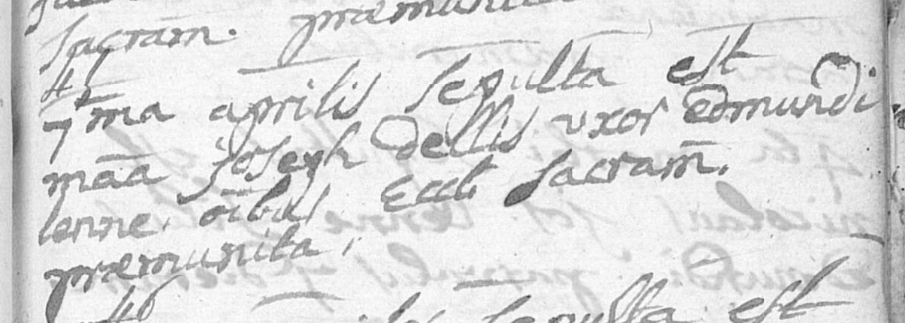 sacram̄. præmunita
47
7ma aprilis sepulta est
māā joseph dellis uxor edmundi
lenne. oībus Eccl. sacram̄.
præmunita.
sepulta est